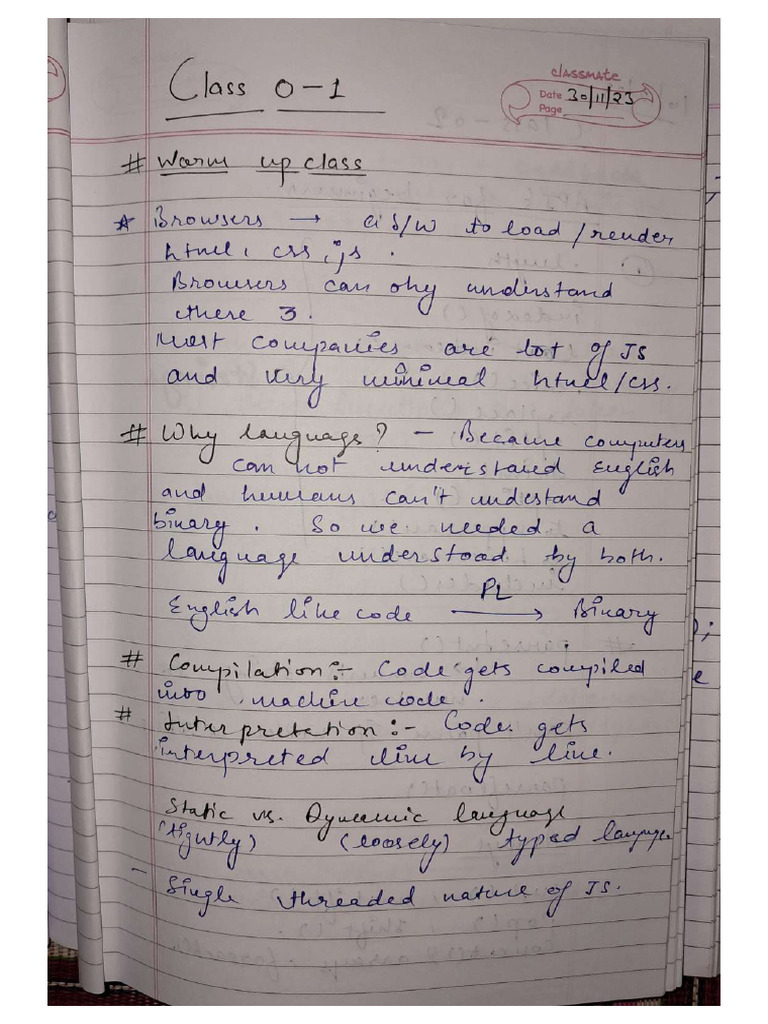 classmate
Class 0-1
Date 30/11/23
Page
# Warm up class
* Browsers → a s/w to load/render
html, css, js.
Browsers can only understand
these 3.
Most companies are lot of JS
and very minimal html/css.
# Why language? - Because computers
can not understand English
and humans can't undestand
binary. So we needed a
language understood by both.
PL
English like code → Binary
# Compilation :- Code gets compiled
into machine code.
# Interpretation :- Code gets
interpreted line by line.
Static vs. Dynamic language
(tightly) (loosely) typed language
- Single threaded nature of JS.